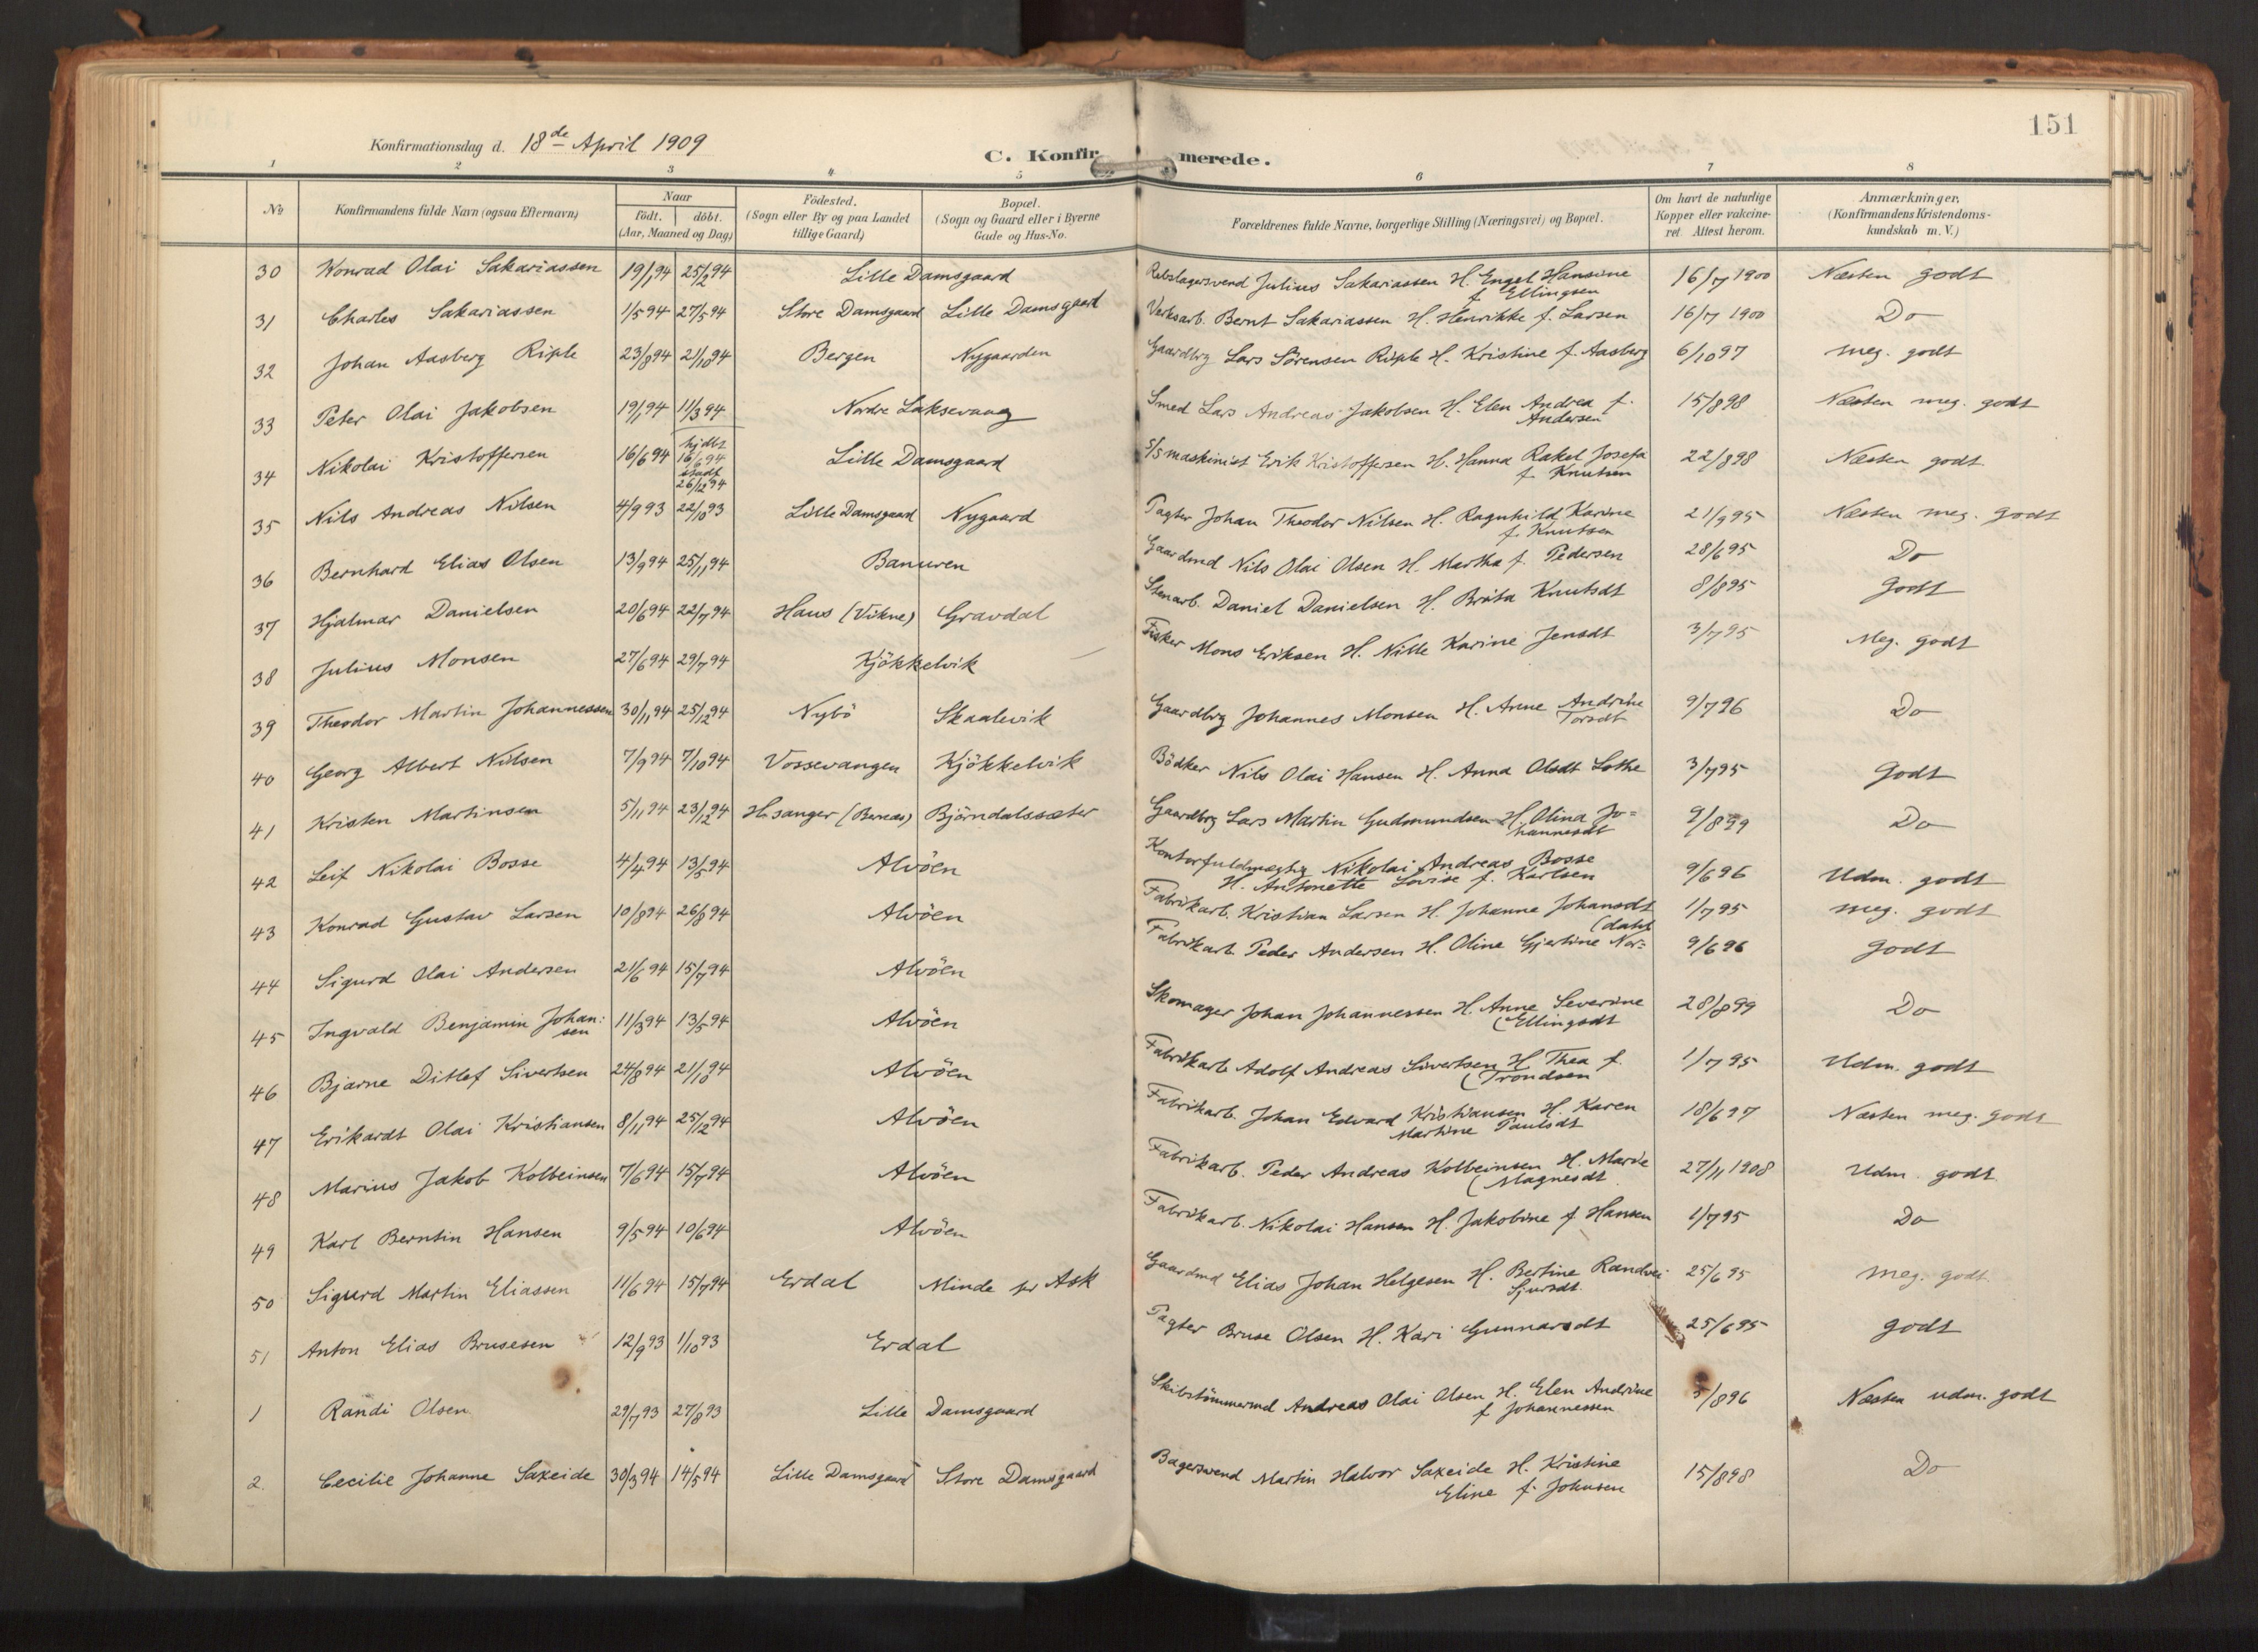 151
Konfirmationsdag d. 18de April 1909
C. Konfirmerede.
1 2 3 4 5 6 7 8
No
Konfirmandens fulde Navn (ogsaa Efternavn)
Naar
födt. döbt.
(Aar, Maaned og Dag)
Födested.
(Sogn eller By og paa Landet
tillige Gaard)
Bopæl.
(Sogn og Gaard eller i Byerne
Gade og Hus-No.
Forældrenes fulde Navne, borgerlige Stilling (Næringsvei) og Bopæl.
Om havt de naturlige
Kopper eller vakcine-
ret. Attest herom.
Anmærkninger,
(Konfirmandens Kristendoms-
kundskab m. V.)
30 Konrad Olai Sakariassen 19/1 94 25/2 94 Lille Damsgaard Rebslagersvend Julius Sakariassen H. Engel Hansine f. Ellingsen 16/7 1900 Næsten godt
31 Charles Sakariassen 1/5 94 27/5 94 Store Damsgaard Lille Damsgaard Verksarb. Bernt Sakariassen H. Henrikke f. Larsen 16/7 1900 Do
32 Johan Aasberg Riple 23/8 94 21/10 94 Bergen Nygaarden Gaardbrg Lars Sörensen Riple H. Kristine f. Aasberg 6/10 97 meg. godt
33 Peter Olai Jakobsen 19/1 94 11/3 94 Nordre Laksevaag Smed Lars Andreas Jakobsen H. Elen Andrea f. Andersen 15/8 98 Næsten meg. godt
34 Nikolai Kristoffersen 16/6 94 hjdbt 16/6 94 stadf 26/12 94 Lille Damsgaard S/S maskinist Erik Kristoffersen H. Hanna Rakel Josefa f. Knutsen 22/8 98 Næsten godt
35 Nils Andreas Nilsen 4/9 93 22/10 93 Lille Damsgaard Nygaard Pagter Johan Theodor Nilsen H. Ragnhild Karine f. Knutsen 21/9 95 Næsten meg. godt
36 Bernhard Elias Olsen 13/9 94 25/11 94 Banuren Gaardmd Nils Olai Olsen H. Martha f. Pedersen 28/6 95 Do
37 Hjalmar Danielsen 20/6 94 22/7 94 Haus (Vikne) Gravdal Stenarb. Daniel Danielsen H. Brita Knutsdt 8/8 95 Godt
38 Julius Monsen 27/6 94 29/7 94 Kjökkelvik Fisker Mons Eriksen H. Nille Karine Jensdt 3/7 95 Meg. godt
39 Theodor Martin Johannessen 30/11 94 25/12 94 Nybö Skaalevik Gaardbrg Johannes Monsen H. Anne Andrine Torsdt 9/7 96 Do
40 Georg Albert Nilsen 7/9 94 7/10 94 Vossevangen Kjökkelvik Bödker Nils Olai Hansen H. Anna Olsdt Lothe 3/7 95 Godt
41 Kristen Martinsen 5/11 94 23/12 94 Hosanger (Bernæs) Björndalssæter Gaardbrg Lars Martin Gudmundsen H. Olina Jo=hannesdt 9/8 99 Do
42 Leif Nikolai Bosse 4/4 94 13/5 94 Alvöen Kontorfuldmægtig Nikolai Andreas Bosse H. Antonette Lovise f. Karlsen 9/6 96 Udm. godt
43 Konrad Gustav Larsen 10/8 94 26/8 94 Alvöen Fabrikarb. Kristian Larsen H. Johanne Johansdt 1/7 95 meg. godt
44 Sigurd Olai Andersen 21/6 94 15/7 94 Alvöen Fabrikarb. Peder Andersen H. Oline Gjertine Nor=(dahl 9/6 96 godt
45 Ingvald Benjamin Johan:sen 11/3 94 13/5 94 Alvöen Skomager Johan Johannessen H. Anne Severine (Ellingsdt 28/8 99 Do
46 Bjarne Ditlef Sivertsen 24/8 94 21/10 94 Alvöen Fabrikarb Adolf Andreas Sivertsen H. Thea f. (Trondsen 1/7 95 Udm. godt
47 Erikardt Olai Kristiansen 8/11 94 25/12 94 Alvöen Fabrikarb. Johan Edvard Kristiansen H. Karen Martine Paulsdt 18/6 97 Næsten meg. godt
48 Marius Jakob Kolbeinsen 7/6 94 15/7 94 Alvöen Fabrikarb. Peder Andreas Kolbeinsen H. Marie (Magnesdt 27/11 1908 Udm. godt
49 Karl Berntin Hansen 9/5 94 10/6 94 Alvöen Fabrikarb. Nikolai Hansen H. Jakobine f. Hansen 1/7 95 Do
50 Sigurd Martin Eliassen 11/6 94 15/7 94 Erdal Minde pr Ask Gaardmd Elias Johan Helgesen H. Bertine Randvei Sjursdt. 25/6 95 meg. godt
51 Anton Elias Brusesen 12/9 93 1/10 93 Erdal Pagter Bruse Olsen H. Kari Gunnarsdt 25/6 95 godt
1 Randi Olsen 29/7 93 27/8 93 Lille Damsgaard Skibstömmermd Andreas Olai Olsen H. Elen Andrine f. Johannessen /8 96 Næsten udm. godt
2. Cecilie Johanne Saxeide 30/3 94 14/5 94 Lille Damsgaard Store Damsgaard Bagersvend Martin Halvor Saxeide H. Kristine Eline f. Johnsen 15/8 98 Do